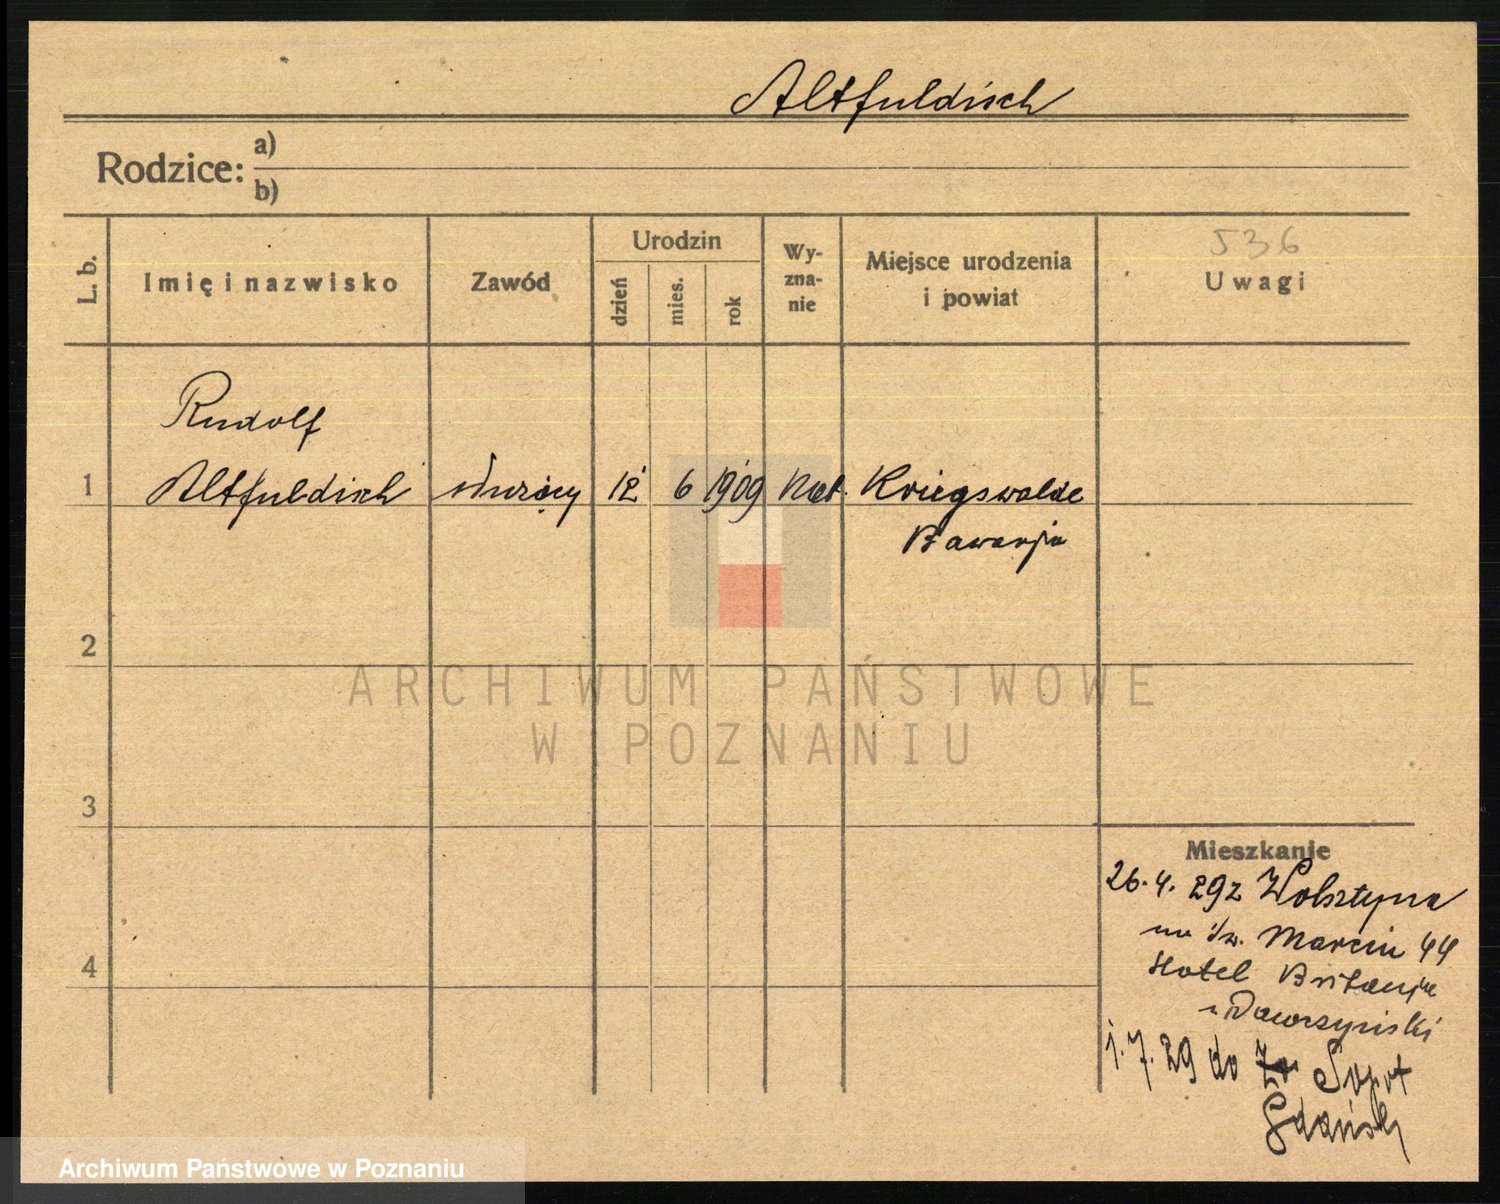 Altfuldisch
Rodzice: a)
b)
536
L. b. Imię i nazwisko Zawód Urodzin dzień mies. rok Wy-zna-nie Miejsce urodzenia i powiat Uwagi
Rudolf
1 Altfuldisch służący 12 6 1909 kat. Kriegswalde
Bawarja
2
ARCHIWUM PAŃSTWOWE
W POZNANIU
3
Mieszkanie
26.4.29 z Wolsztyna
na św. Marcin 44
4
Hotel Britanja
1.7.29 do Sopot
Gdańsk
Archiwum Państwowe w Poznaniu